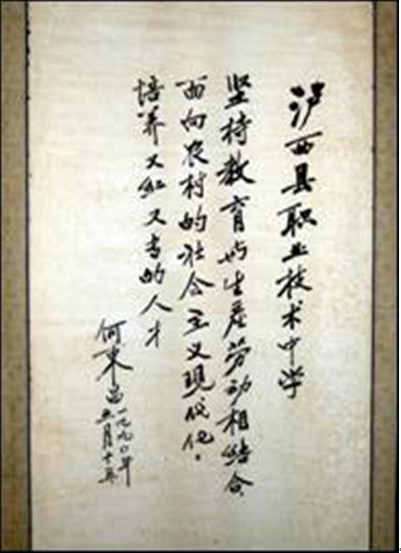 泸西县职业技术中学
坚持教育与生产劳动相结合
面向农村的社会主义现代化。
培养又红又专的人才
何东昌
一九九〇年
五月十年